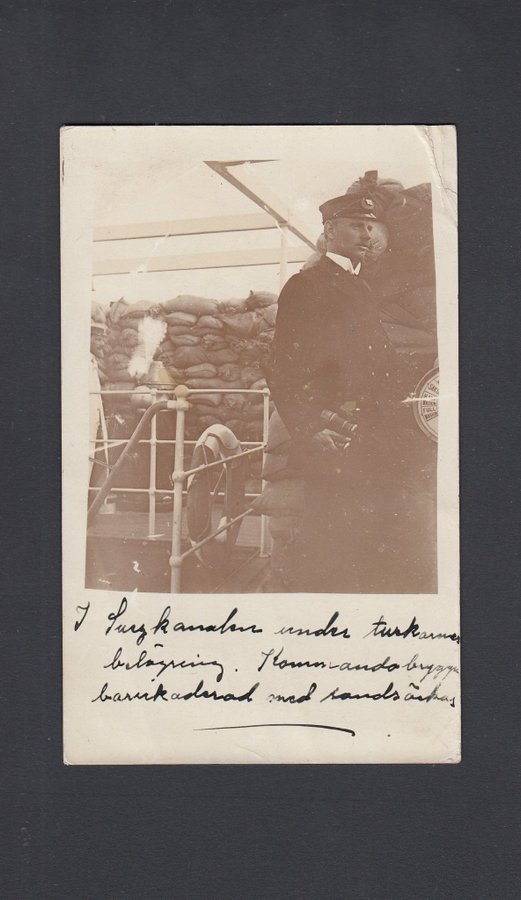 I Suezkanalen under turkarnes
belägring. Kommandobryggan
barrikaderad med sandsäckar
FULL